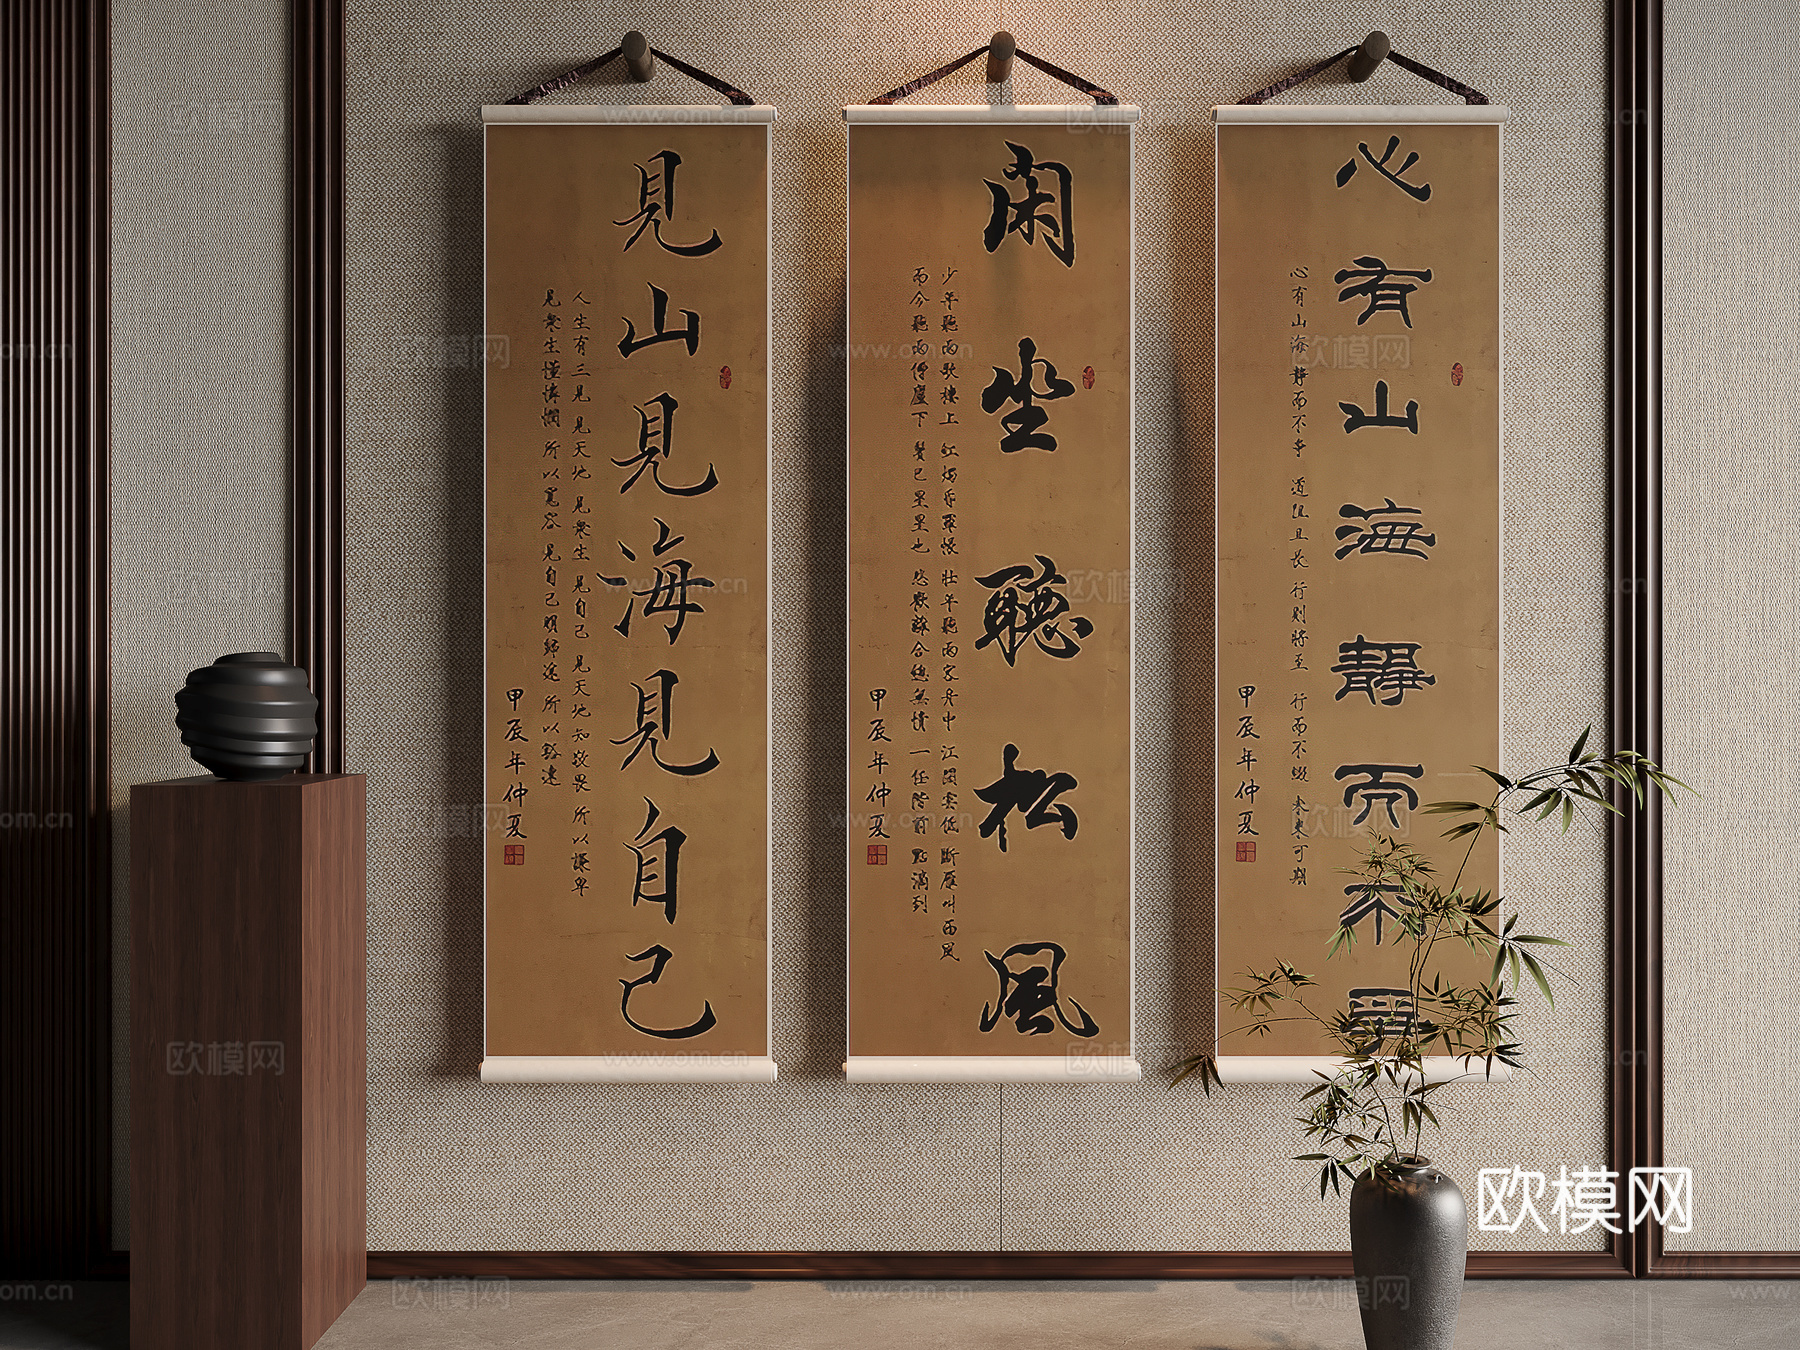 見山見海見自己
人生有三見 見天地 見衆生 見自己 見天地知敬畏 所以謙卑
見衆生懂憐憫 所以寬容 見自己明歸途 所以豁達
甲辰年仲夏
閑坐聽松風
少年聽雨歌樓上 紅燭昏羅帳 壯年聽雨客舟中 江闊雲低 斷雁叫西風
而今聽雨僧廬下 鬢已星星也 悲歡離合總無情 一任階前 點滴到
甲辰年仲夏
心有山海靜而不爭
心有山海 靜而不爭 道阻且長 行則將至 行而不輟 未來可期
甲辰年仲夏
欧模网
www.om.cn